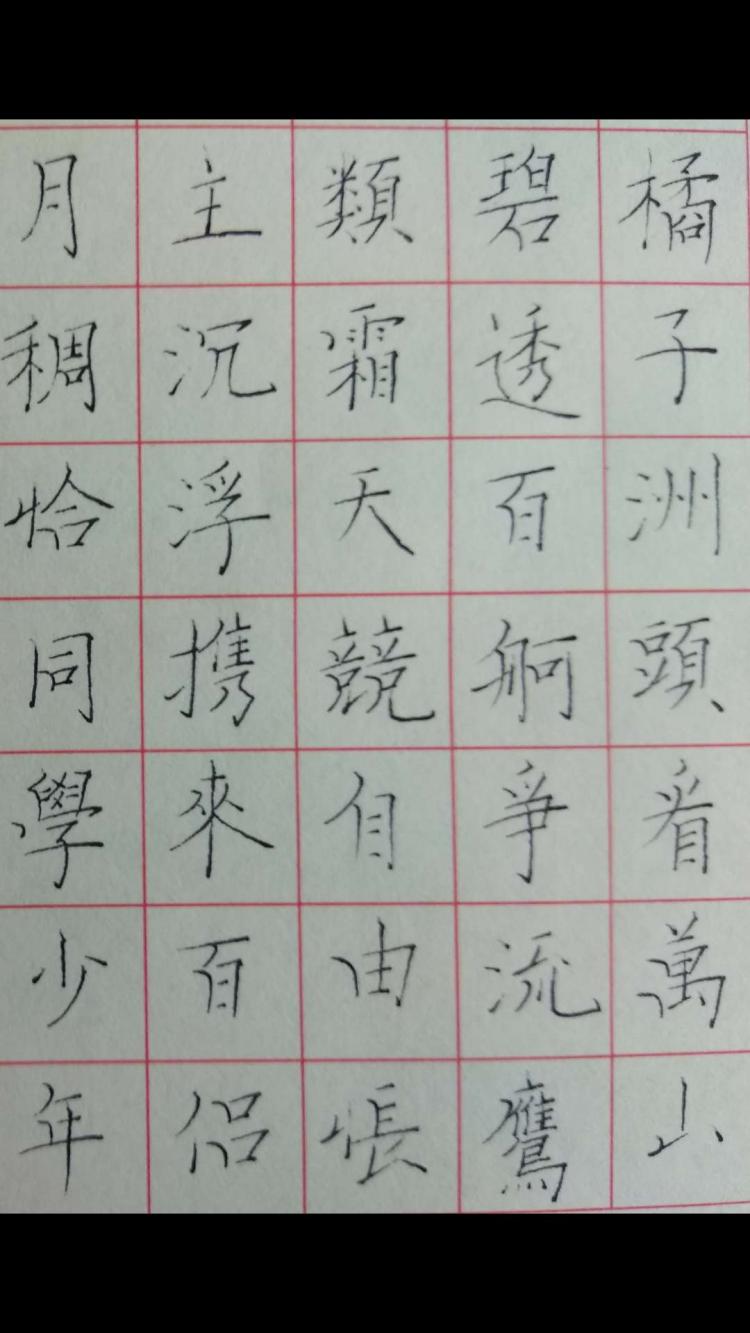 橘子洲頭看萬山
碧透百舸爭流鷹
類霜天競自由悵
主沉浮携來百侶
月稠恰同學少年